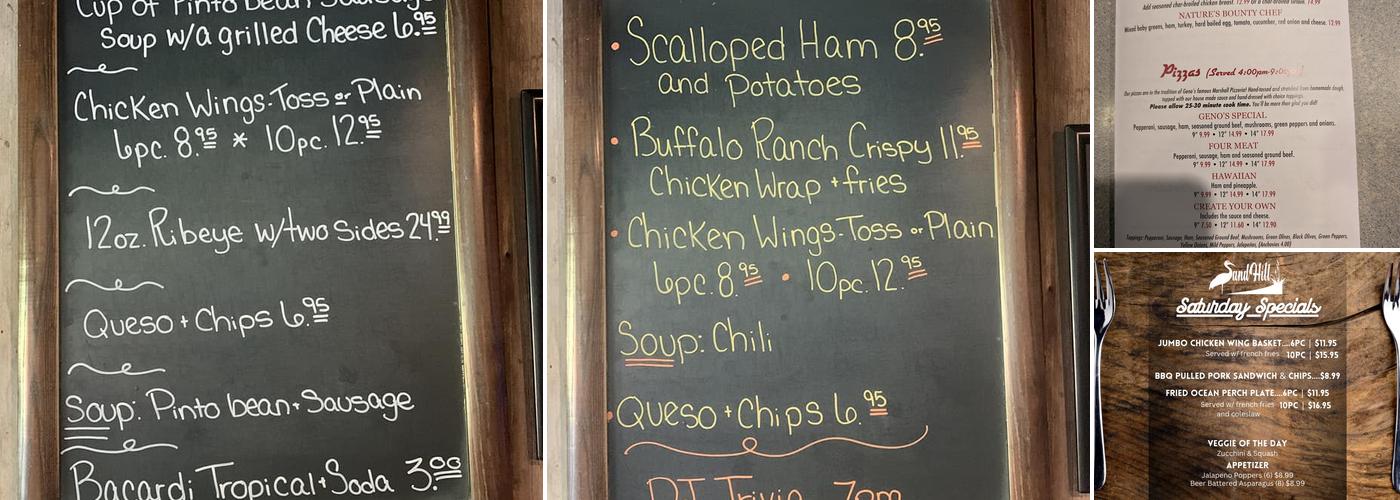 Cup of Pinto bean Sausage
Soup w/a grilled Cheese 6.95
Chicken Wings-Toss or Plain
6pc. 8.95 * 10pc. 12.95
12oz. Ribeye w/two Sides 24.99
Queso + Chips 6.95
Soup: Pinto bean + Sausage
Bacardi Tropical + Soda 3.00
• Scalloped Ham 8.95
and Potatoes
• Buffalo Ranch Crispy 11.95
Chicken Wrap + fries
• Chicken Wings-Toss or Plain
6pc. 8.95 • 10pc. 12.95
Soup: Chili
• Queso + Chips 6.95
DJ Trivia 7pm
Add seasoned char-broiled chicken breast. 12.99 Or a char-broiled sirloin. 14.99
NATURE'S BOUNTY CHEF
Mixed baby greens, ham, turkey, hard boiled egg, tomato, cucumber, red onion and cheese. 12.99
Pizzas (Served 4:00pm-9:00pm)
Our pizzas are in the tradition of Geno's famous Marshall Pizzeria! Hand-tossed and stretched from homemade dough,
topped with our house made sauce and hand-dressed with choice toppings.
Please allow 25-30 minute cook time. You'll be more than glad you did!
GENO'S SPECIAL
Pepperoni, sausage, ham, seasoned ground beef, mushrooms, green peppers and onions.
9" 9.99 • 12" 14.99 • 14" 17.99
FOUR MEAT
Pepperoni, sausage, ham and seasoned ground beef.
9" 9.99 • 12" 14.99 • 14" 17.99
HAWAIIAN
Ham and pineapple.
9" 9.99 • 12" 14.99 • 14" 17.99
CREATE YOUR OWN
Includes the sauce and cheese.
9" 7.50 • 12" 11.60 • 14" 12.90
Toppings: Pepperoni, Sausage, Ham, Seasoned Ground Beef, Mushrooms, Green Olives, Black Olives, Green Peppers,
Yellow Onions, Mild Peppers, Jalapeños, (Anchovies 4.00)
Sand Hill
Saturday Specials
JUMBO CHICKEN WING BASKET....6PC | $11.95
Served w/ french fries 10PC | $15.95
BBQ PULLED PORK SANDWICH & CHIPS....$8.99
FRIED OCEAN PERCH PLATE....6PC | $11.95
Served w/ french fries 10PC | $16.95
and coleslaw
VEGGIE OF THE DAY
Zucchini & Squash
APPETIZER
Jalapeno Poppers (6) $8.99
Beer Battered Asparagus (8) $8.99